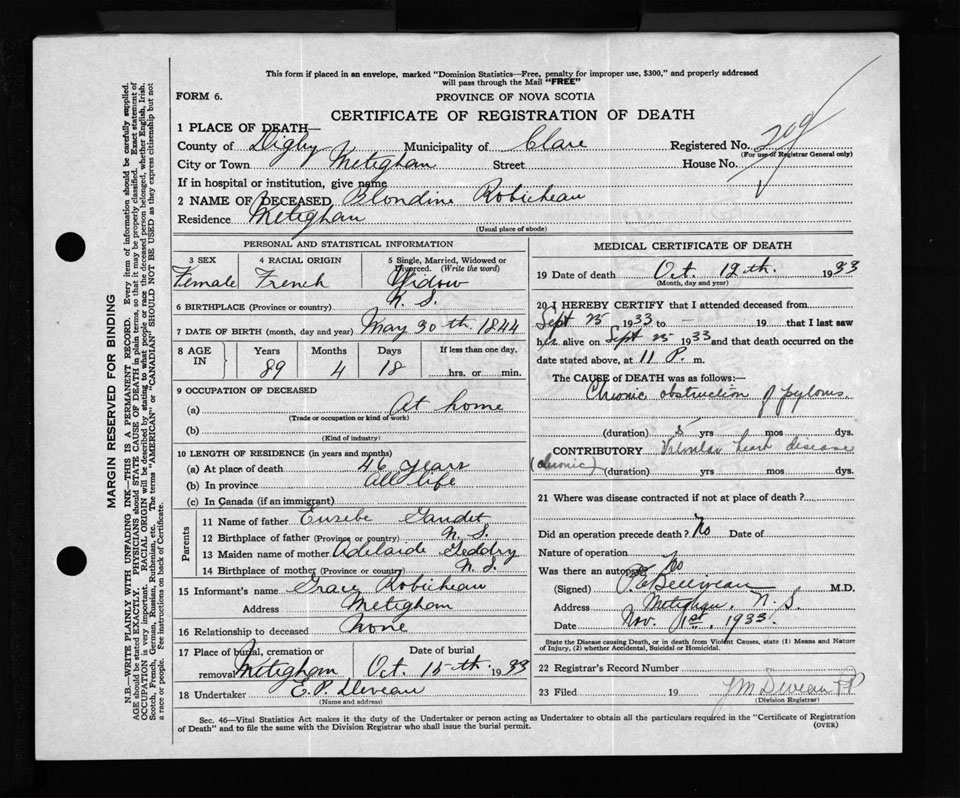 This form if placed in an envelope, marked "Dominion Statistics—Free, penalty for improper use, $300," and properly addressed
will pass through the Mail "FREE"
FORM 6.
PROVINCE OF NOVA SCOTIA
CERTIFICATE OF REGISTRATION OF DEATH
1 PLACE OF DEATH—
County of Digby Municipality of Clare Registered No. 209
(For use of Registrar General only)
City or Town Meteghan Street House No.
If in hospital or institution, give name
2 NAME OF DECEASED Blondine Robicheau
Residence Meteghan
(Usual place of abode)
PERSONAL AND STATISTICAL INFORMATION
3 SEX 4 RACIAL ORIGIN 5 Single, Married, Widowed or Divorced. (Write the word)
Female French Widow
6 BIRTHPLACE (Province or country) N. S.
7 DATE OF BIRTH (month, day and year) May 30th. 1844
8 AGE IN Years Months Days If less than one day.
89 4 18 hrs. or min.
9 OCCUPATION OF DECEASED
(a) At home
(Trade or occupation or kind of work)
(b)
(Kind of industry)
10 LENGTH OF RESIDENCE (in years and months)
(a) At place of death 46 years
(b) In province all life
(c) In Canada (if an immigrant)
Parents
11 Name of father Eusebe Gaudet
12 Birthplace of father (Province or country) N. S.
13 Maiden name of mother Adelaide Geddry
14 Birthplace of mother (Province or country) N. S.
15 Informant's name Grace Robicheau
Address Meteghan
16 Relationship to deceased None
17 Place of burial, cremation or removal Date of burial
Meteghan Oct. 15th. 1933
18 Undertaker E. P. Deveau
(Name and address)
MEDICAL CERTIFICATE OF DEATH
19 Date of death Oct. 12th. 1933
(Month, day and year)
20 I HEREBY CERTIFY that I attended deceased from
Sept 25 1933 to — 19 that I last saw
her alive on Sept 25 1933 and that death occurred on the
date stated above, at 11 P. m.
The CAUSE of DEATH was as follows:—
Chronic obstruction of pylorus.
(duration) 5 yrs mos dys.
CONTRIBUTORY Valvular heart disease
(chronic) (duration) yrs mos dys.
21 Where was disease contracted if not at place of death?
Did an operation precede death? No Date of
Nature of operation
Was there an autopsy No
(Signed) Belliveau M.D.
Address Meteghan. N. S.
Date Nov. 1st. 1933.
State the Disease causing Death, or in death from Violent Causes, state (1) Means and Nature
of Injury, (2) whether Accidental, Suicidal or Homicidal.
22 Registrar's Record Number
23 Filed 19 J M Deveau PP
(Division Registrar)
Sec. 46—Vital Statistics Act makes it the duty of the Undertaker or person acting as Undertaker to obtain all the particulars required in the "Certificate of Registration
of Death" and to file the same with the Division Registrar who shall issue the burial permit.
(OVER)
MARGIN RESERVED FOR BINDING
N.B.—WRITE PLAINLY WITH UNFADING INK—THIS IS A PERMANENT RECORD. Every item of information should be carefully supplied.
AGE should be stated EXACTLY. PHYSICIANS should STATE CAUSE OF DEATH in plain terms, so that it may be properly classified. Exact statement of
OCCUPATION is very important. RACIAL ORIGIN will be described by stating to what people or race the deceased person belonged, whether English, Irish,
Scotch, French, German, Russian, Ruthenian, etc. The terms "AMERICAN" or "CANADIAN" SHOULD NOT BE USED as they express citizenship but not
a race or people. See instructions on back of Certificate.